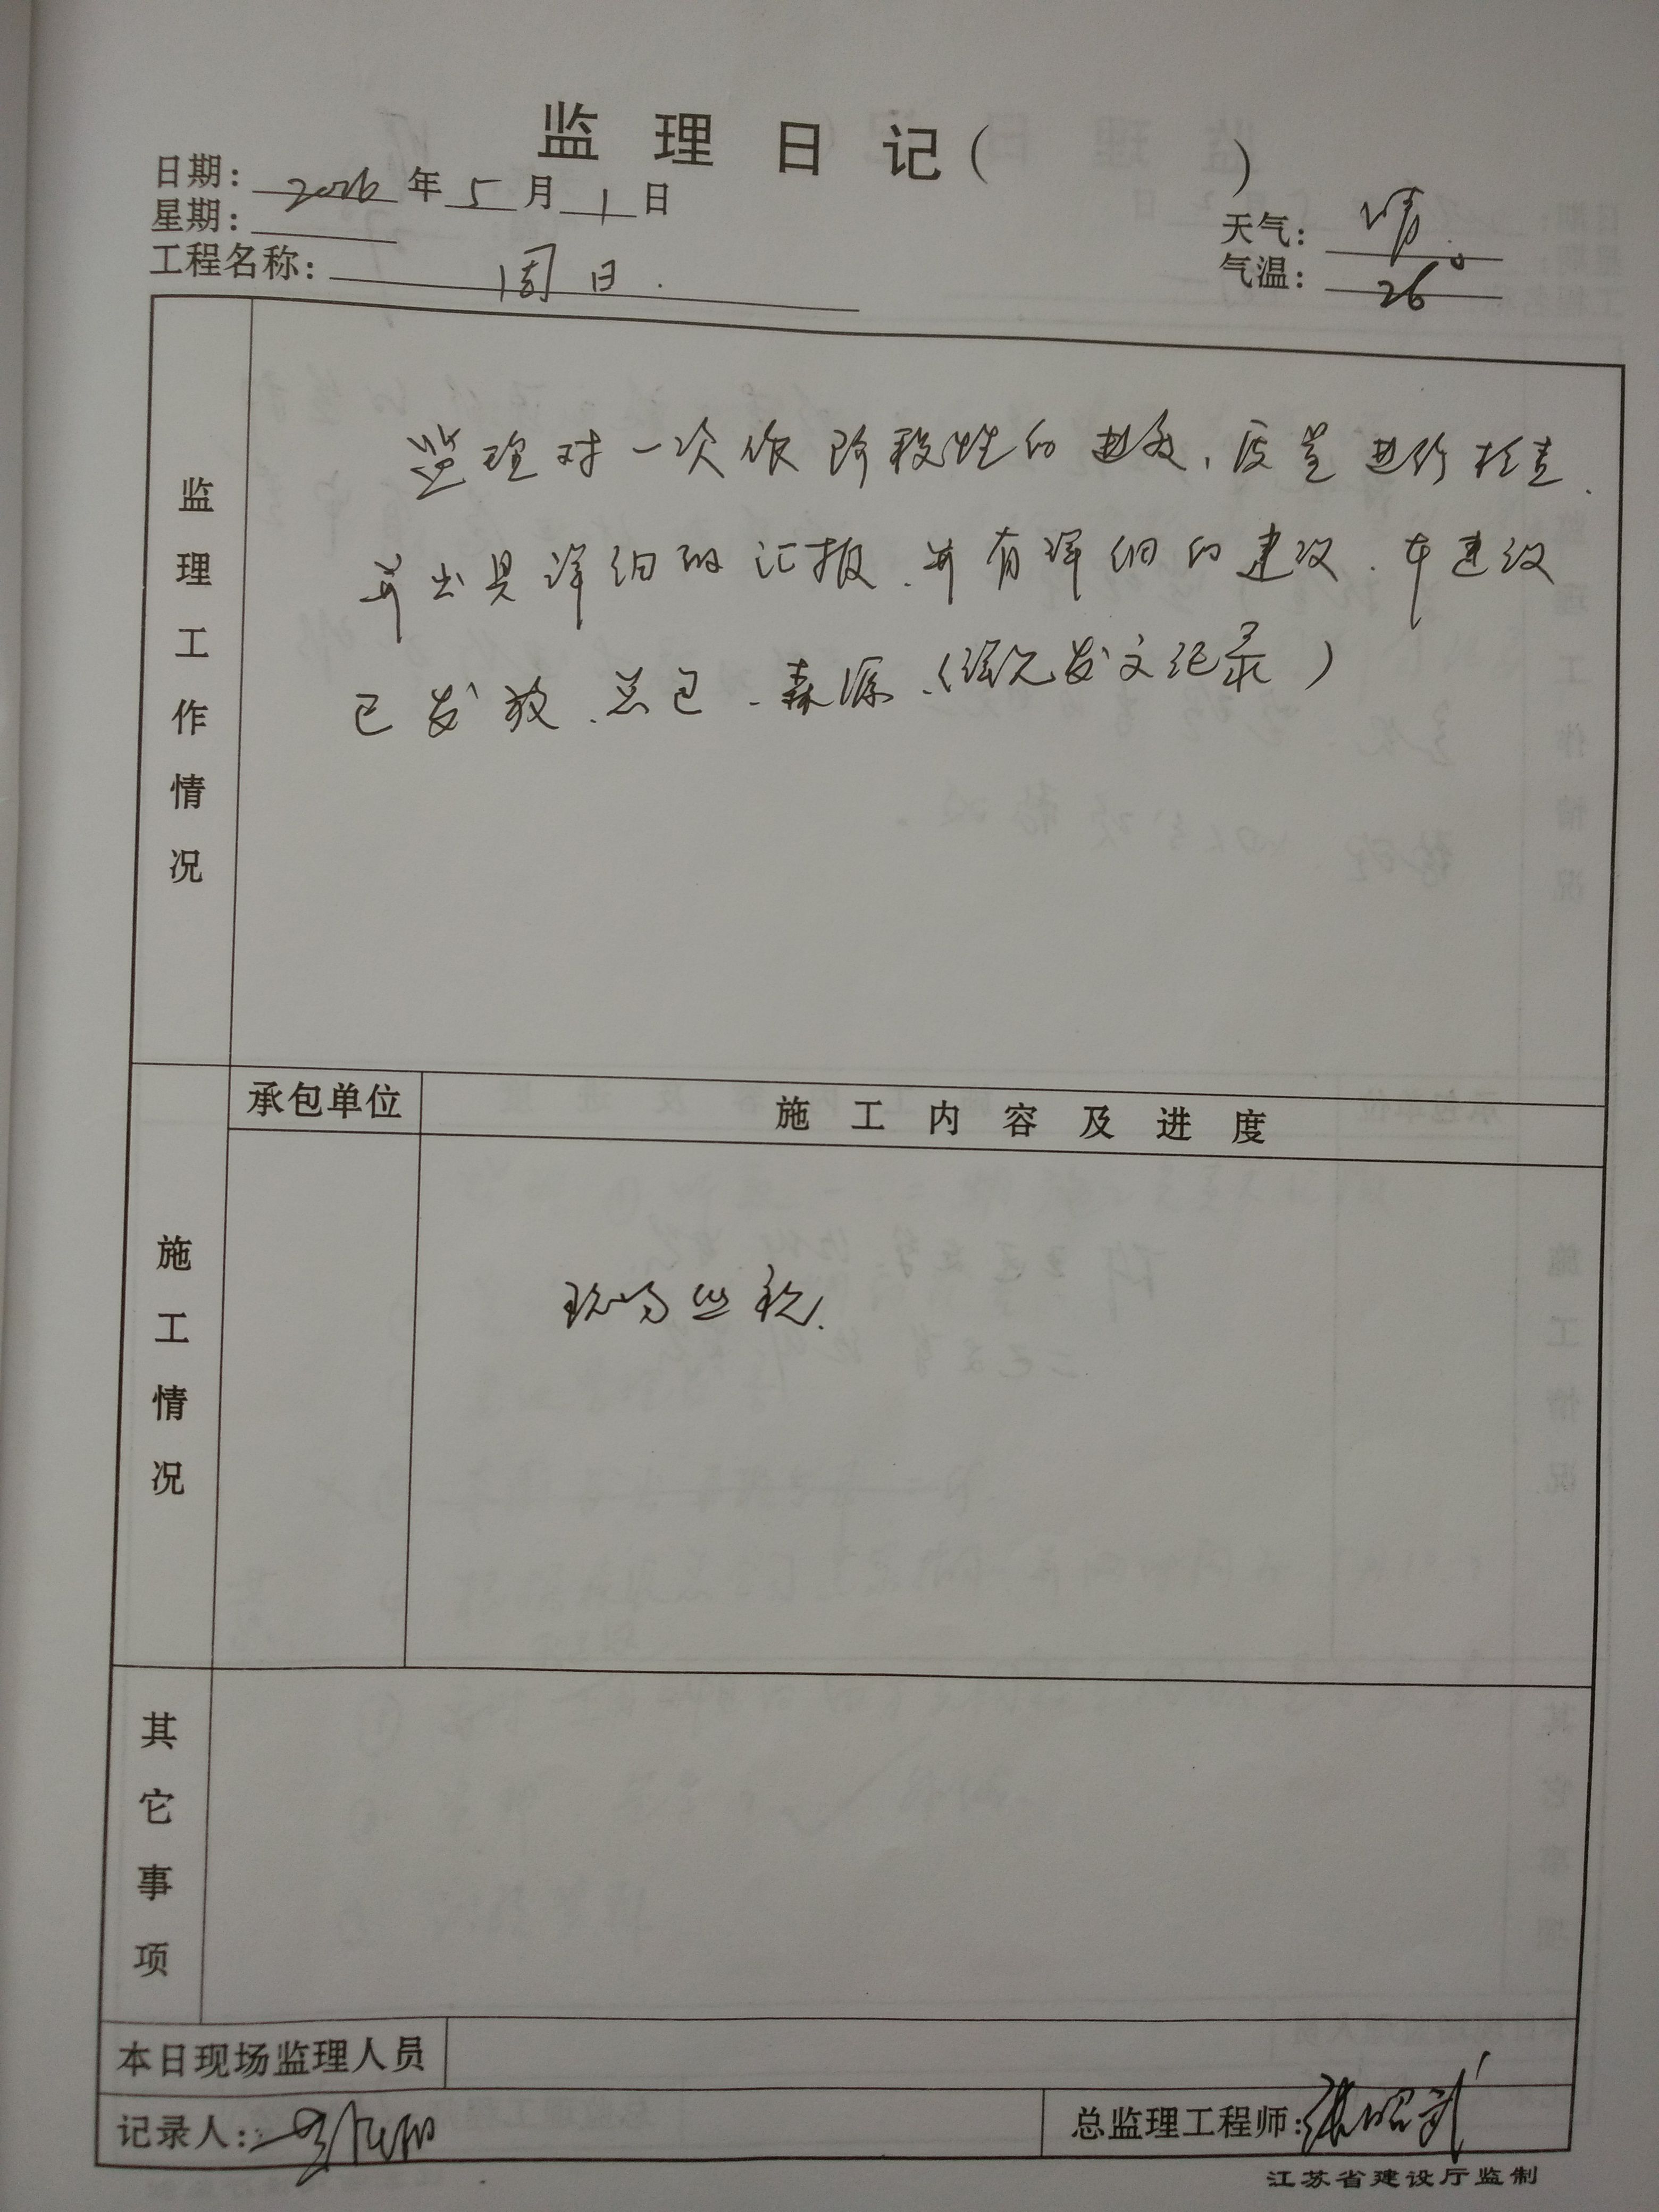 监理日记（ ）
日期：2016年5月1日
星期：
工程名称：周日.
天气：晴.
气温：26°
监理工作情况
监理对一次作阶段性的进度、质量进行检查.
并出具详细的汇报.并有详细的建议.本建议
已发放.总包.森源.（详见发文记录）
施工情况
承包单位
施工内容及进度
现场巡视.
其它事项
本日现场监理人员
记录人：
总监理工程师：
江苏省建设厅监制